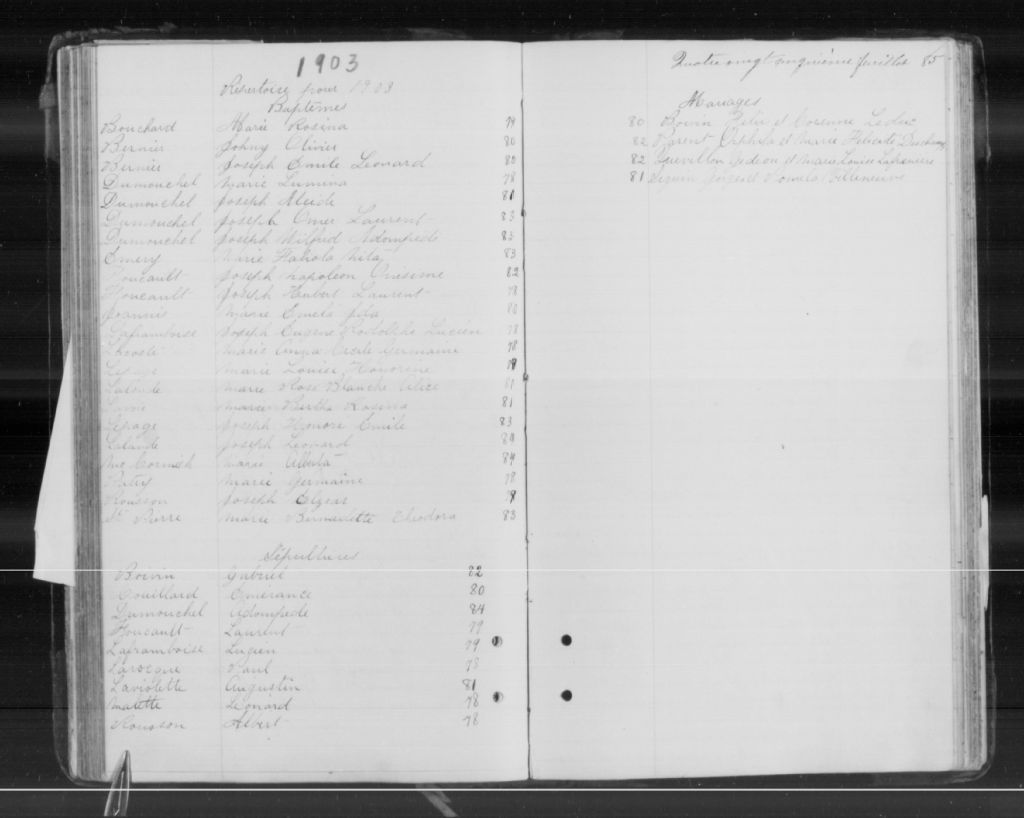 1903
Répertoire pour 1903
Baptêmes
Bouchard Marie Rosina 79
Bernier Johny Olivier 80
Bernier Joseph Emile Leonard 80
Dumouchel Marie Lumina 78
Dumouchel Joseph Alcide 81
Dumouchel Joseph Omer Laurent 83
Dumouchel Joseph Wilfrid Adompede 83
Emery Marie Fabiola 83
Foucault Joseph Napoleon Onesime 82
Foucault Joseph Hubert Laurent 78
Joannis Marie 80
Laframboise Joseph Eugene Rodolphe Lucien 78
Lacoste Marie Cecile Germaine 78
Lepage Marie Louise Honorine 79
Lalonde Marie Rose Blanche Alice 81
Marie Bertha Rosina 81
Lepage Joseph Honore Emile 83
Lalande Joseph Leonard 84
Mc Cormish Marie Alberta 84
Marie Germaine 78
Rousson Joseph Elzear 79
St Pierre Marie Bernadette Eliodora 83
Sépultures
Boivin Gabriel 82
Couillard Emerance 80
Dumouchel Adompede 84
Foucault Laurent 79
Laframboise Lucien 79
Larocque Paul 78
Laviolette Augustin 81
Malette Leonard 78
Rousson Albert 78
Quatre vingt cinquième feuillet 85
Mariages
80 Boivin et Leduc
82 Parent Orphila et Marie
82 Quevillon Gedeon et Marie Louise Lafreniere
81 Seguin et Villeneuve